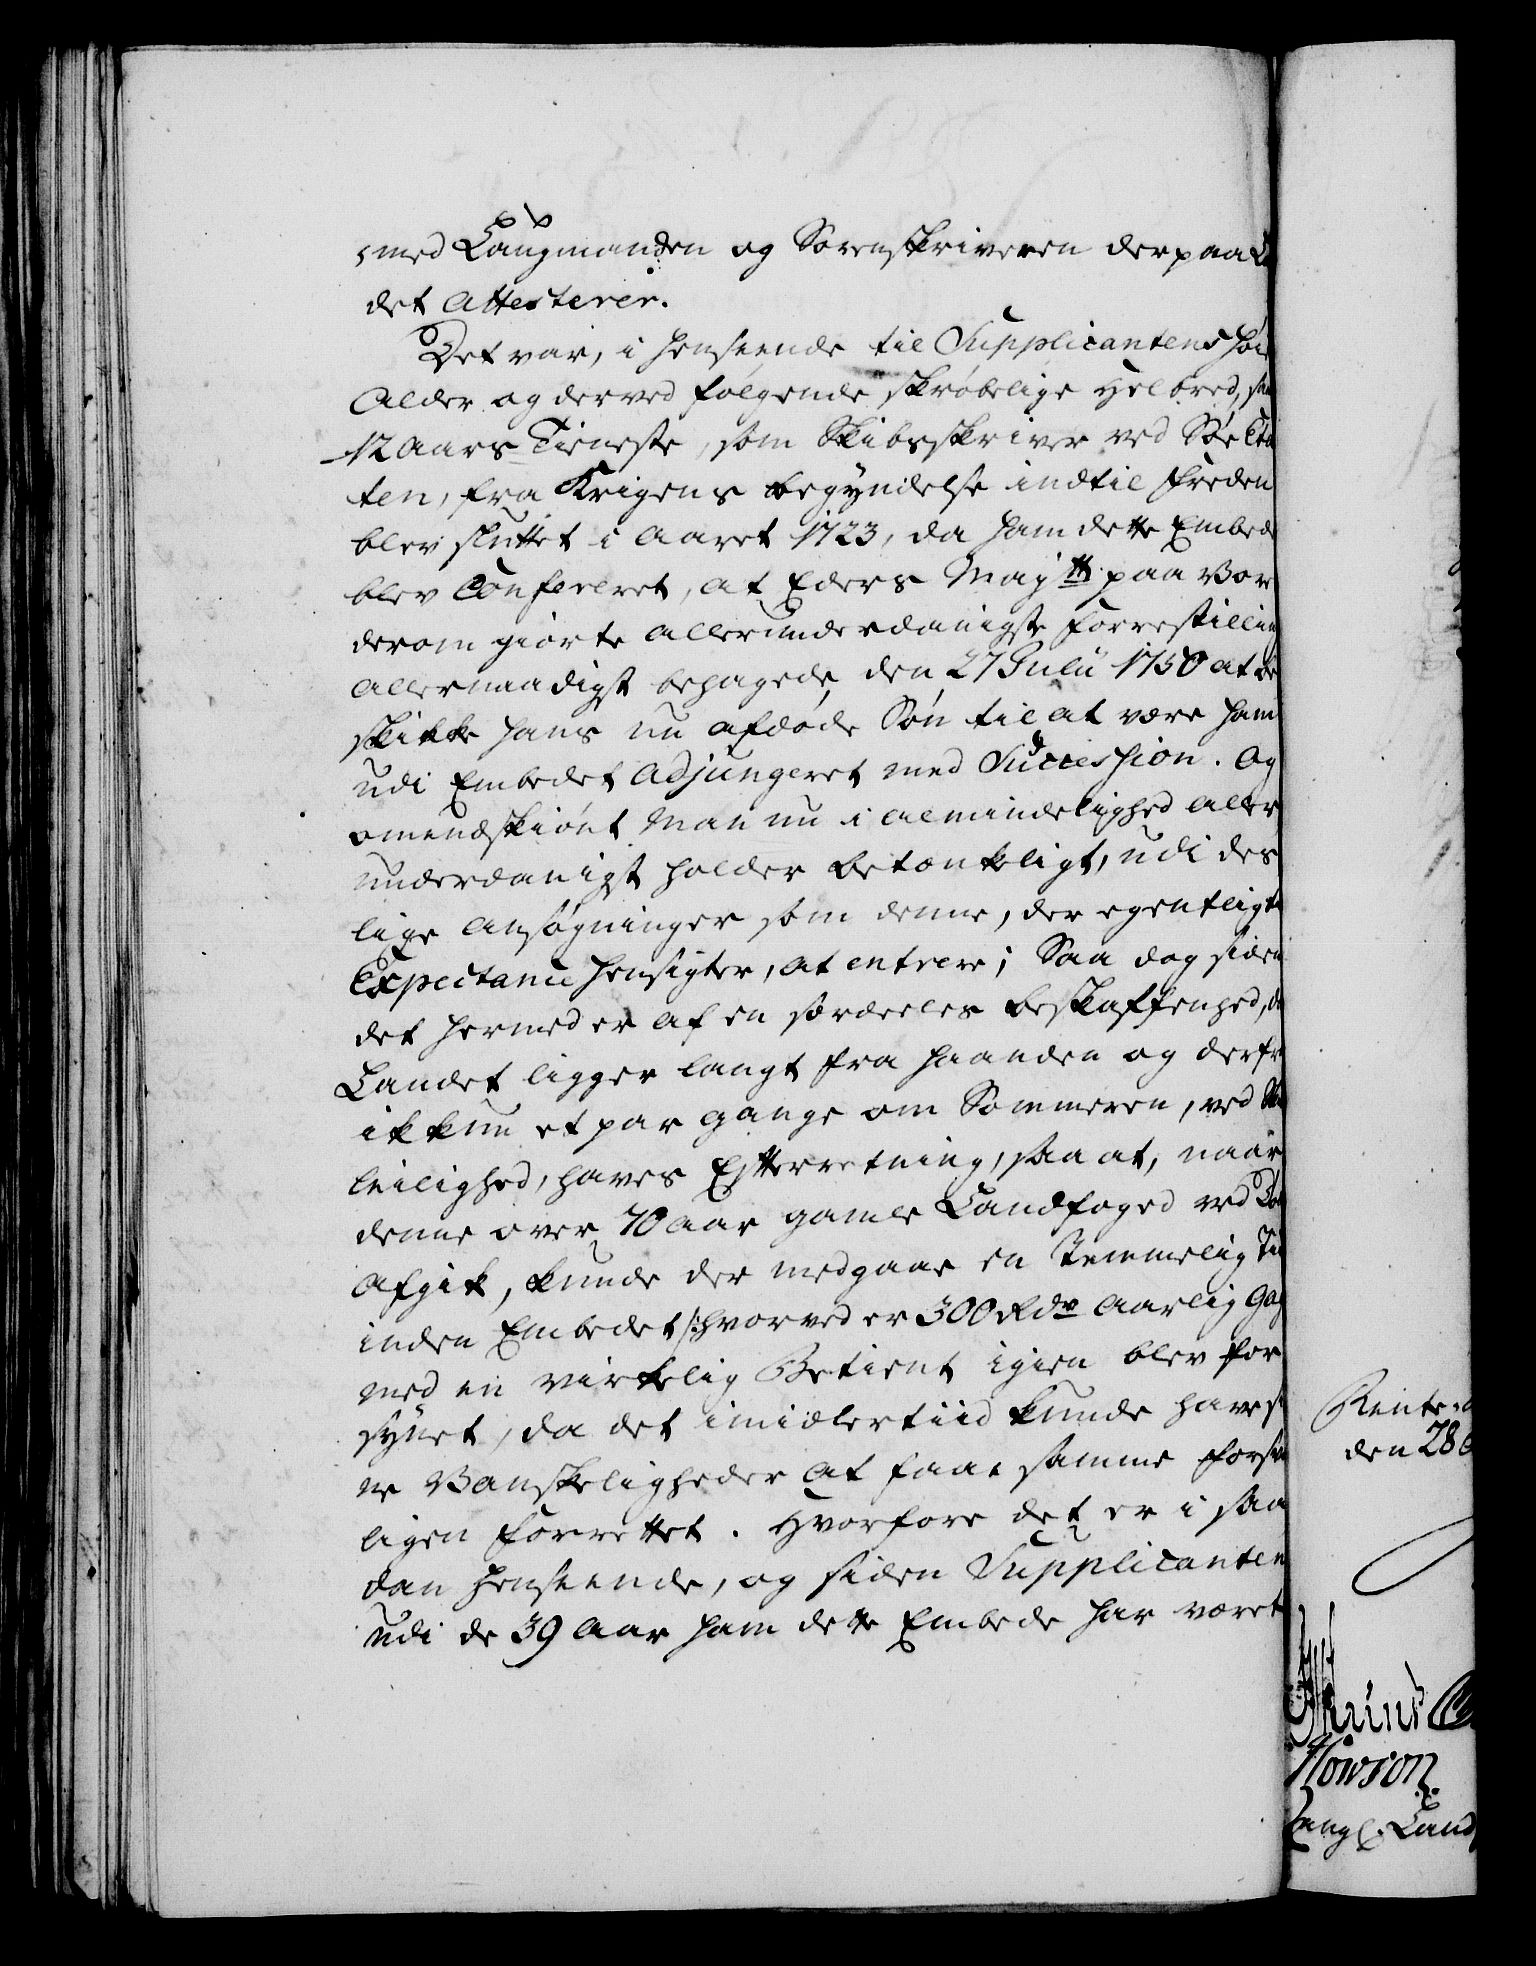 med Laugmanden og Sorenskriveren derpaa La
det attesterer.
Det var, i henseende til Supplicantens høie
Alder og derved følgende skrøbelige Helbred, sa
12 aars Tieneste, som Skibsskriver ved Søe Eta
ten, fra Krigens begyndelse indtil Freden
blev sluttet i Aaret 1723, da ham dette Embede
blev Confereret, at Eders Majtt paa Vor
derom giorte allerunderdanigste Forrestilling
allernaadigst behagede den 27 Julii 1750 at be
skikke hans nu afdøde Søn til at være ham
udi Embedet adjungeret med Succession. Og
omendskiønt Man nu i almindelighed aller
underdanigst holder betænkeligt, udi des
lige Ansøgninger som denne, der egentligt
Expectance hensigter, at entrere; Saa dog siden
det hermed er af en særdeeles beskaffenhed, da
Landet ligger langt fra haanden og derfra
ikkun et par gange om Sommeren, ved
leilighed, haves Efterretning, saa at, naar
denne over 70 aar gamle Landfoged ved Dø
afgik, kunde der medgaae en temmelig Tid
inden Embedet /:hvorved er 300 Rdr aarlig Gag
med en virkelig Betient igien blev for
synet, da det imidlertiid kunde have si
ne Vanskeligheder at faae samme forsva
ligen forrettet. Hvorfore det er i saa
dan henseende, og siden Supplicanten
udi de 39 Aar ham dette Embede har været
Rente-
den 28
Howson.
Land